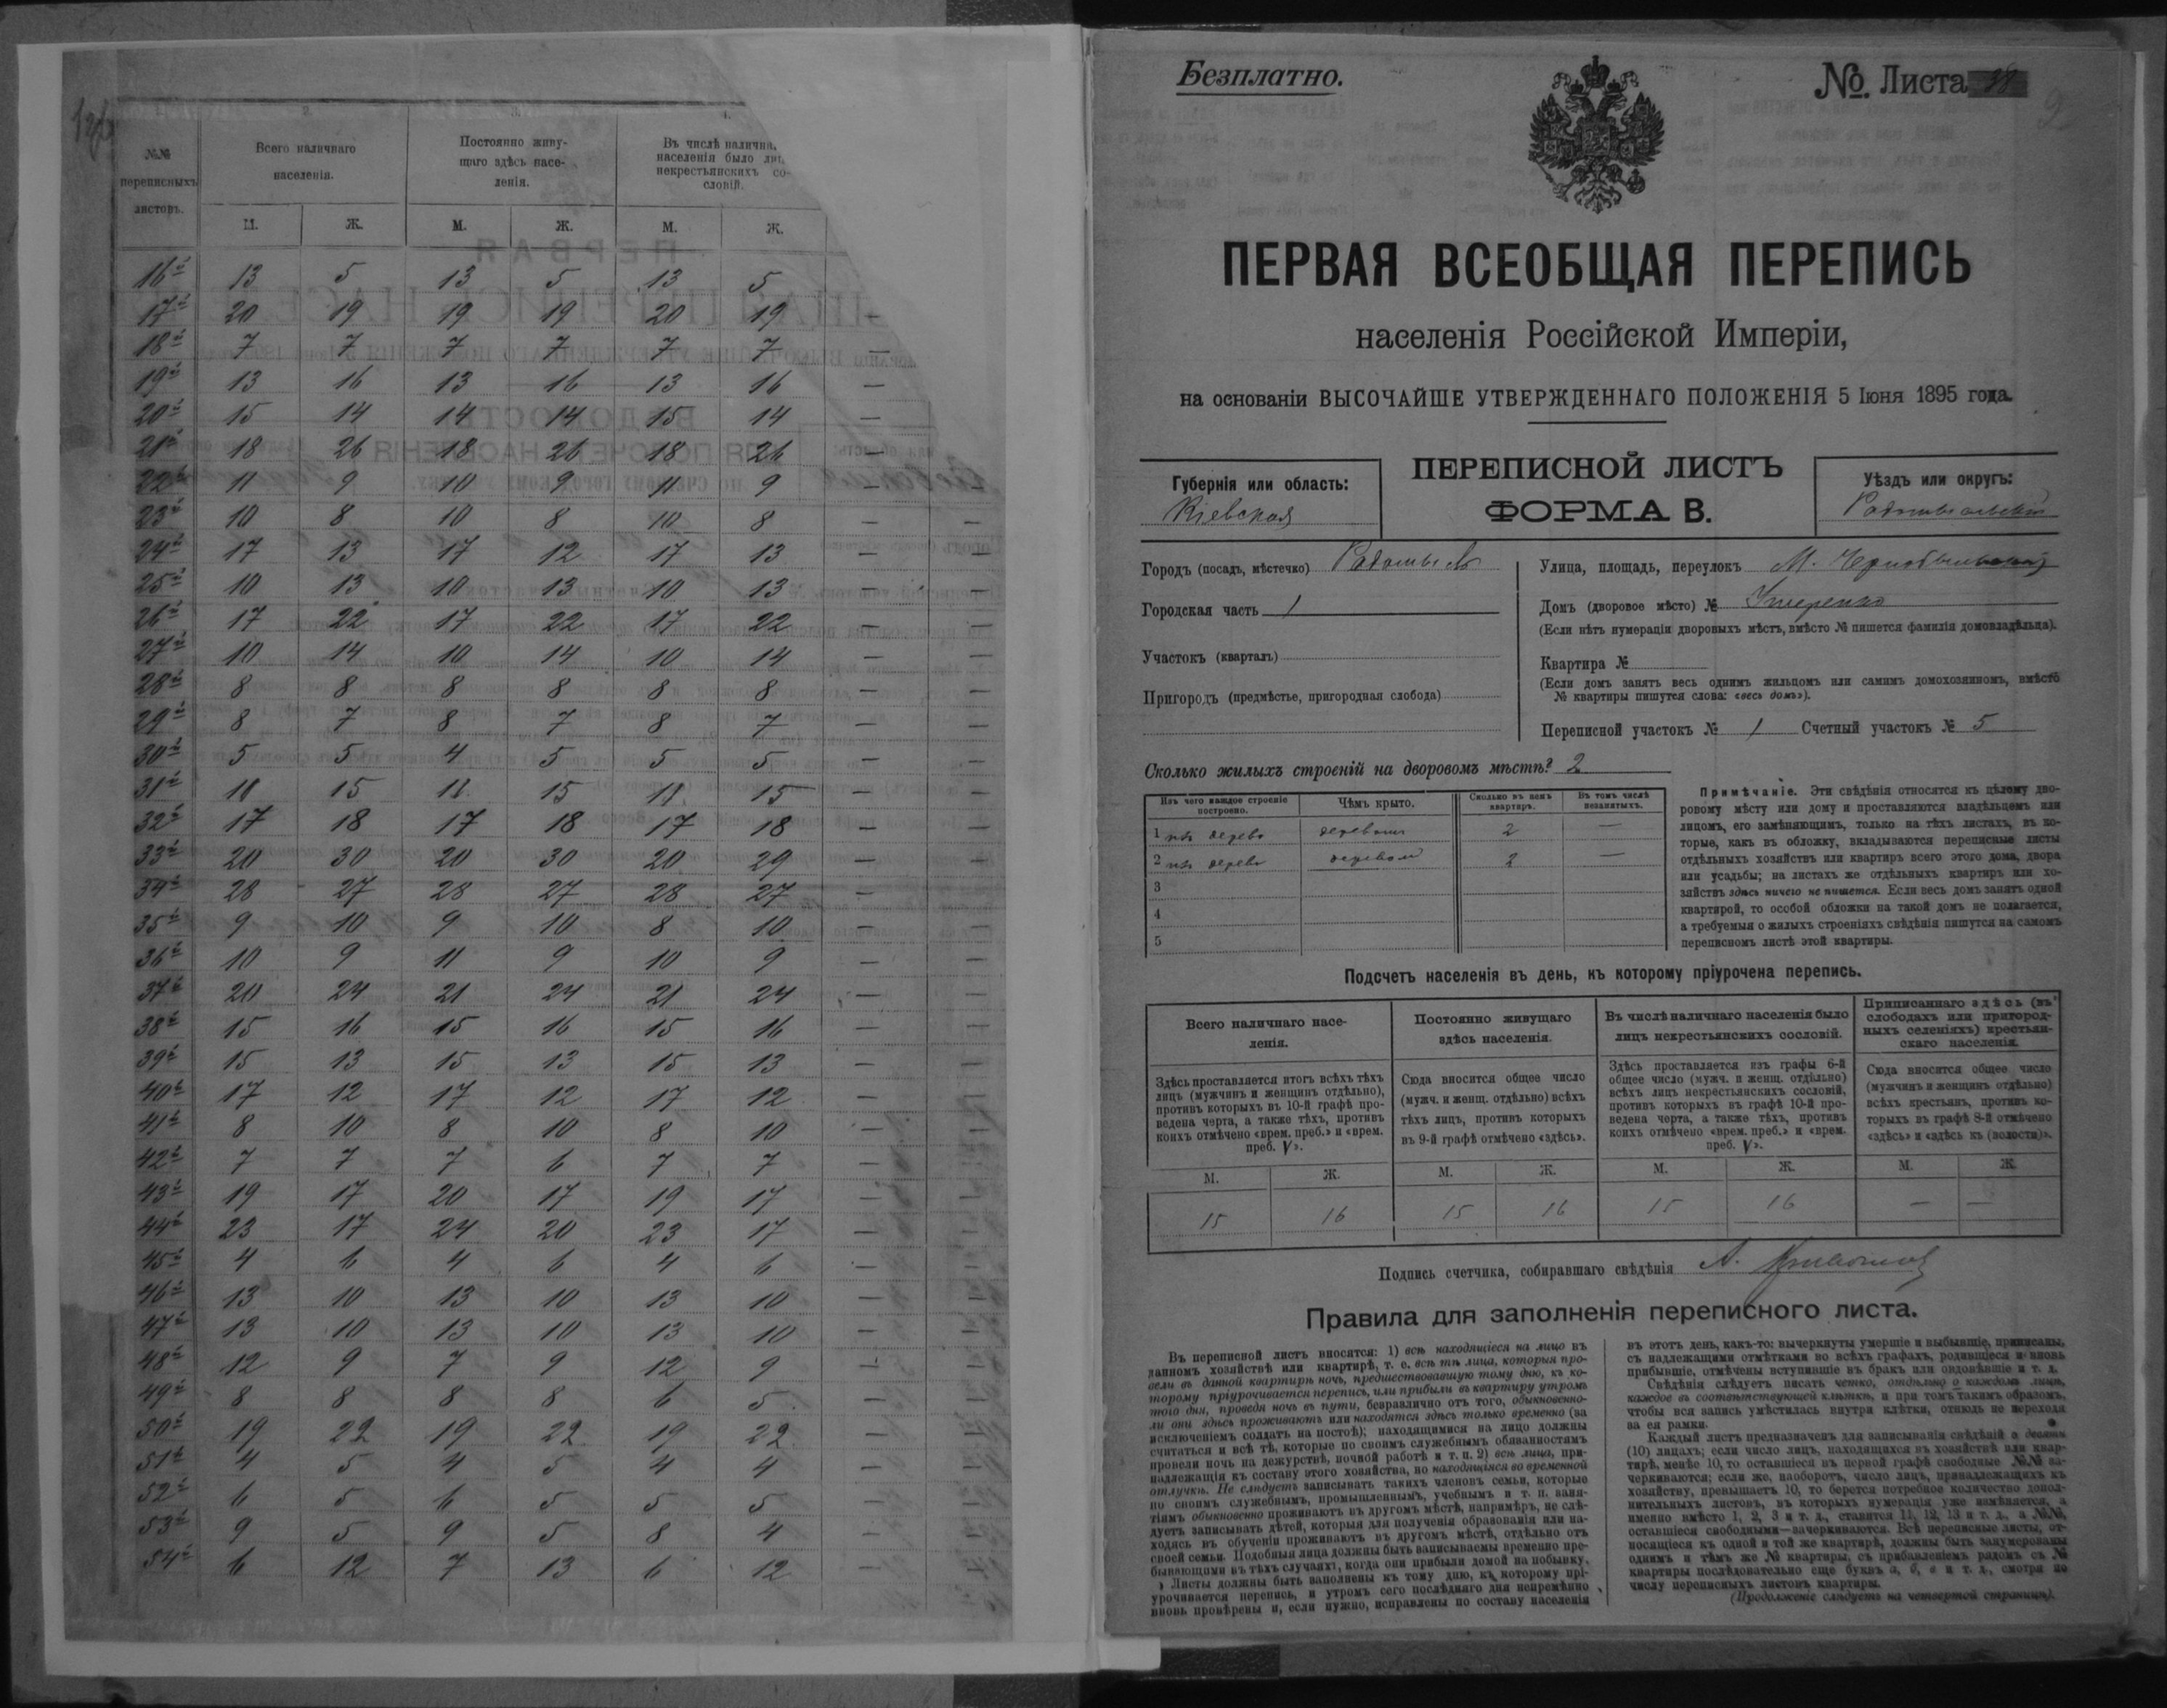 1.
2.
3.
4.
№№ переписныхъ листовъ.
Всего наличнаго населенія.
Постоянно живущаго здѣсь населенія.
Въ числѣ налична. населенія было ли некрестьянскихъ сословій.
М. Ж. М. Ж. М. Ж.
16й 13 5 13 5 13 5
17й 20 19 19 19 20 19 —
18й 7 7 7 7 7 7 —
19й 13 16 13 16 13 16 —
20й 15 14 14 14 15 14 —
21й 18 26 18 26 18 26 —
22й 11 9 10 9 11 9 — —
23й 10 8 10 8 10 8 — —
24й 17 13 17 12 17 13 — —
25й 10 13 10 13 10 13 — —
26й 17 22 17 22 17 22 — —
27й 10 14 10 14 10 14 — —
28й 8 8 8 8 8 8 — —
29й 8 7 8 7 8 7 — —
30й 5 5 4 5 5 5 — —
31й 11 15 11 15 11 15 — —
32й 17 18 17 18 17 18 — —
33й 20 30 20 30 20 29 — —
34й 28 27 28 27 28 27 — —
35й 9 10 9 10 8 10 — —
36й 10 9 11 9 10 9 — —
37й 20 24 21 24 21 24 — —
38й 15 16 15 16 15 16 — —
39й 15 13 15 13 15 13 — —
40й 17 12 17 12 17 12 — —
41й 8 10 8 10 8 10 — —
42й 7 7 7 6 7 7 — —
43й 19 17 20 17 19 17 — —
44й 23 17 24 20 23 17 — —
45й 4 6 4 6 4 6 — —
46й 13 10 13 10 13 10 — —
47й 13 10 13 10 13 10 — —
48й 12 9 7 9 12 9 — —
49й 8 8 8 8 6 5 — —
50й 19 22 19 22 19 22 — —
51й 4 5 4 5 4 4 — —
52й 6 5 6 5 5 5 — —
53й 9 5 9 5 8 4 — —
54й 6 12 7 13 6 12 — —
Безплатно.
№. Листа 38
ПЕРВАЯ ВСЕОБЩАЯ ПЕРЕПИСЬ
населенія Россійской Имперіи,
на основаніи ВЫСОЧАЙШЕ УТВЕРЖДЕННАГО ПОЛОЖЕНІЯ 5 Іюня 1895 года.
Губернія или область:
Кіевская
ПЕРЕПИСНОЙ ЛИСТЪ
ФОРМА В.
Уѣздъ или округъ:
Радомысльскій
Городъ (посадъ, мѣстечко) Радомысль
Городская часть 1
Участокъ (кварталъ)
Пригородъ (предмѣстье, пригородная слобода)
Улица, площадь, переулокъ М. Чернобыльская
Домъ (дворовое мѣсто) №
(Если нѣтъ нумераціи дворовыхъ мѣстъ, вмѣсто № пишется фамилія домовладѣльца).
Квартира №
(Если домъ занятъ весь однимъ жильцомъ или самимъ домохозяиномъ, вмѣсто
№ квартиры пишутся слова: «весь домъ»).
Переписной участокъ № 1 Счетный участокъ № 5
Сколько жилыхъ строеній на дворовомъ мѣстѣ? 2
Изъ чего каждое строеніе построено.
Чѣмъ крыто.
Сколько въ немъ квартиръ.
Въ томъ числѣ незанятыхъ.
1 изъ дерева деревомъ 2 —
2 изъ дерева деревомъ 2 —
3
4
5
Примѣчаніе. Эти свѣдѣнія относятся къ цѣлому дво-
ровому мѣсту или дому и проставляются владѣльцемъ или
лицомъ, его замѣняющимъ, только на тѣхъ листахъ, въ ко-
торые, какъ въ обложку, вкладываются переписные листы
отдѣльныхъ хозяйствъ или квартиръ всего этого дома, двора
или усадьбы; на листахъ же отдѣльныхъ квартиръ или хо-
зяйствъ здѣсь ничего не пишется. Если весь домъ занятъ одной
квартирой, то особой обложки на такой домъ не полагается,
а требуемыя о жилыхъ строеніяхъ свѣдѣнія пишутся на самомъ
переписномъ листѣ этой квартиры.
Подсчетъ населенія въ день, къ которому пріурочена перепись.
Всего наличнаго насе-
ленія.
Постоянно живущаго
здѣсь населенія.
Въ числѣ наличнаго населенія было
лицъ некрестьянскихъ сословій.
Приписаннаго здѣсь (въ
слободахъ или пригород-
ныхъ селеніяхъ) крестьян-
скаго населенія.
Здѣсь проставляется итогъ всѣхъ тѣхъ
лицъ (мужчинъ и женщинъ отдѣльно),
противъ которыхъ въ 10-й графѣ про-
ведена черта, а также тѣхъ, противъ
коихъ отмѣчено «врем. преб.» и «врем.
преб. V».
Сюда вносится общее число
(мужч. и женщ. отдѣльно) всѣхъ
тѣхъ лицъ, противъ которыхъ
въ 9-й графѣ отмѣчено «здѣсь».
Здѣсь проставляется изъ графы 6-й
общее число (мужч. и женщ. отдѣльно)
всѣхъ лицъ некрестьянскихъ сословій,
противъ которыхъ въ графѣ 10-й про-
ведена черта, а также тѣхъ, противъ
коихъ отмѣчено «врем. преб.» и «врем.
преб. V».
Сюда вносится общее число
(мужчинъ и женщинъ отдѣльно)
всѣхъ крестьянъ, противъ ко-
торыхъ въ графѣ 8-й отмѣчено
«здѣсь» и «здѣсь къ (волости)».
М. Ж. М. Ж. М. Ж. М. Ж.
15 16 15 16 15 16 — —
Подпись счетчика, собиравшаго свѣдѣнія А.
Правила для заполненія переписного листа.
Въ переписной листъ вносятся: 1) всѣ находящіеся на лицо въ
данномъ хозяйствѣ или квартирѣ, т. е. всѣ тѣ лица, которыя про-
вели въ данной квартирѣ ночь, предшествовавшую тому дню, къ ко-
торому пріурочивается перепись, или прибыли въ квартиру утромъ
того дня, проведя ночь въ пути, безразлично отъ того, обыкновенно-
ли они здѣсь проживаютъ или находятся здѣсь только временно (за
исключеніемъ солдатъ на постоѣ); находящимися на лицо должны
считаться и всѣ тѣ, которые по своимъ служебнымъ обязанностямъ
провели ночь на дежурствѣ, ночной работѣ и т. п. 2) всѣ лица, при-
надлежащія къ составу этого хозяйства, но находящіяся во временной
отлучкѣ. Не слѣдуетъ записывать такихъ членовъ семьи, которые
по своимъ служебнымъ, промышленнымъ, учебнымъ и т. п. заня-
тіямъ обыкновенно проживаютъ въ другомъ мѣстѣ, напримѣръ, не слѣ-
дуетъ записывать дѣтей, которыя для полученія образованія или на-
ходясь въ обученіи проживаютъ въ другомъ мѣстѣ, отдѣльно отъ
своей семьи. Подобныя лица должны быть записываемы временно пре-
бывающими въ тѣхъ случаяхъ, когда они прибыли домой на побывку.
Листы должны быть заполнены къ тому дню, къ которому прі-
урочивается перепись, и утромъ сего послѣдняго дня непремѣнно
вновь провѣрены и, если нужно, исправлены по составу населенія
въ этотъ день, какъ-то: вычеркнуты умершіе и выбывшіе, приписаны,
съ надлежащими отмѣтками во всѣхъ графахъ, родившіеся и вновь
прибывшіе, отмѣчены вступившіе въ бракъ или овдовѣвшіе и т. д.
Свѣдѣнія слѣдуетъ писать четко, отдѣльно о каждомъ лицѣ,
каждое въ соотвѣтствующей клѣткѣ, и при томъ такимъ образомъ,
чтобы вся запись умѣстилась внутри клѣтки, отнюдь не переходя
за ея рамки.
Каждый листъ предназначенъ для записыванія свѣдѣній о десяти
(10) лицахъ; если число лицъ, находящихся въ хозяйствѣ или квар-
тирѣ, менѣе 10, то оставшіеся въ первой графѣ свободные №№ за-
черкиваются; если же, наоборотъ, число лицъ, принадлежащихъ къ
хозяйству, превышаетъ 10, то берется потребное количество допол-
нительныхъ листовъ, въ которыхъ нумерація уже измѣняется, а
именно вмѣсто 1, 2, 3 и т. д., ставятся 11, 12, 13 и т. д., а №№,
оставшіеся свободными—зачеркиваются. Всѣ переписные листы, от-
носящіеся къ одной и той же квартирѣ, должны быть занумерованы
однимъ и тѣмъ же № квартиры, съ прибавленіемъ рядомъ съ №
квартиры послѣдовательно еще буквъ а, б, в и т. д., смотря по
числу переписныхъ листовъ квартиры.
(Продолженіе слѣдуетъ на четвертой страницѣ).